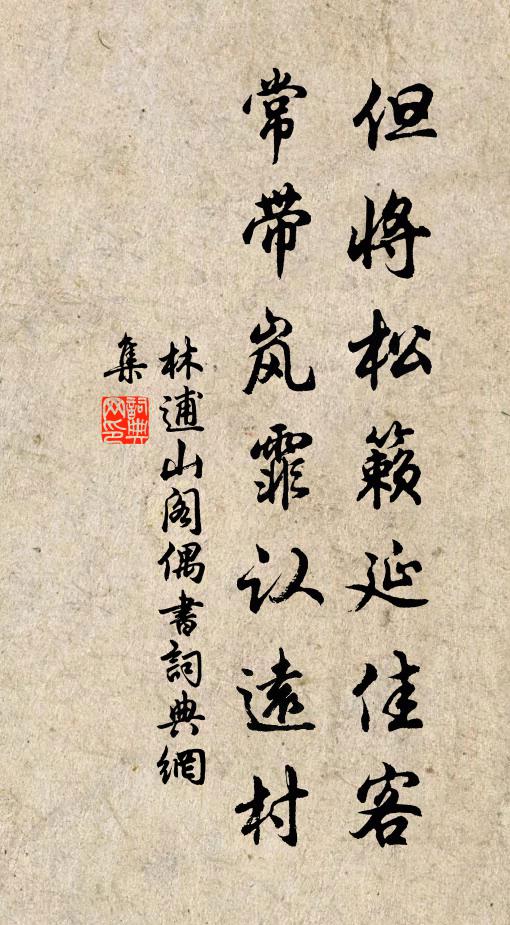 但将松籁延佳客
常带岚霏认遠村
林逋山阁偶書詞典網
集
詞典
网印